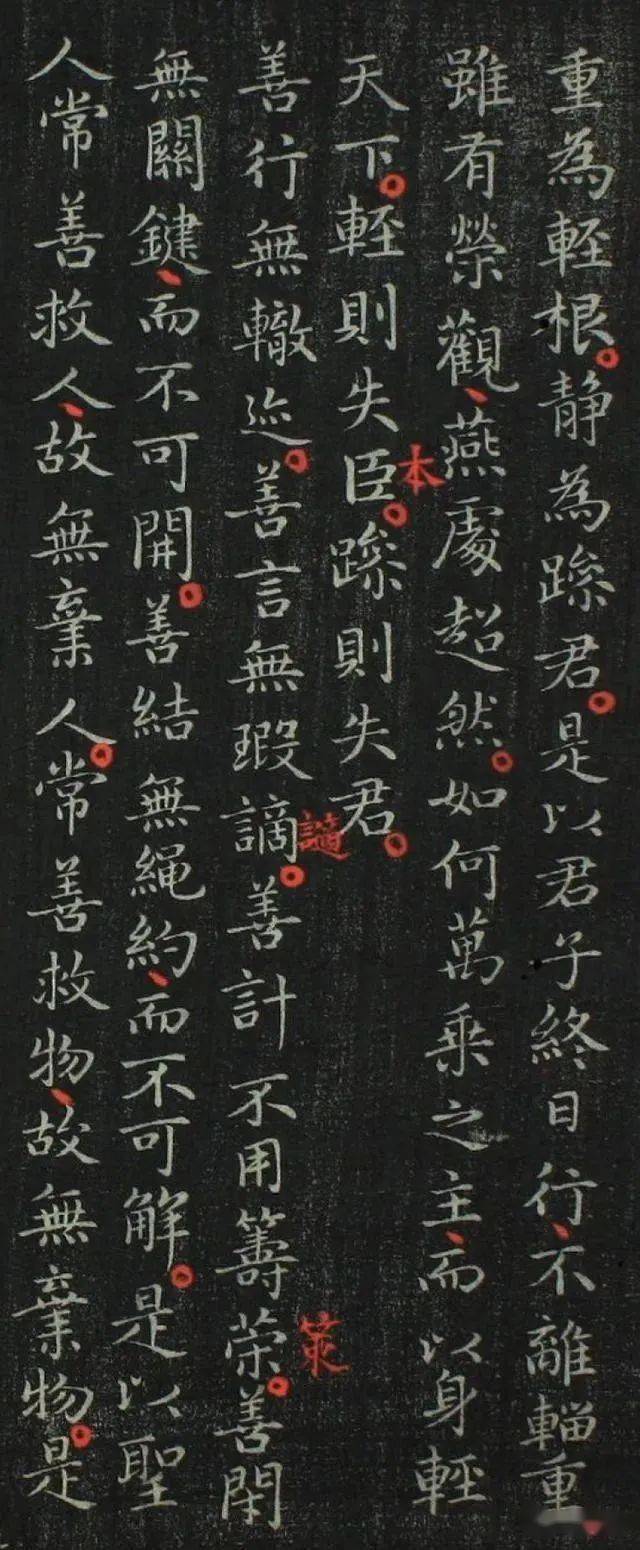 重為輕根。靜為躁君。是以君子終日行、不離輜重
雖有榮觀、燕處超然。如何萬乘之主、而以身輕
天下。輕則失臣。躁則失君。
本
善行無轍迹。善言無瑕謫。善計不用籌荣。善閇
讁
策
無關鍵、而不可開。善結無繩約、而不可解。是以聖
人常善救人、故無棄人。常善救物、故無棄物。是